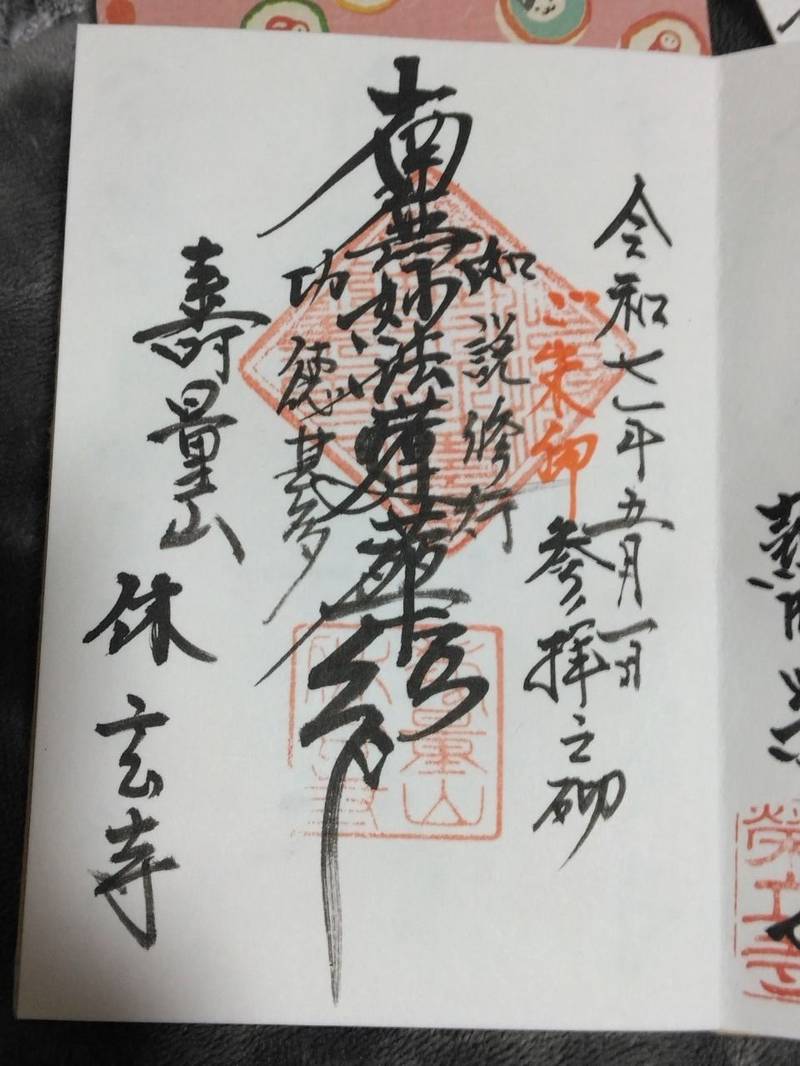 令和七年五月一日
ご朱印
参拝之砌
如説修行
南無妙法蓮華経
功徳甚多
壽量山
休玄寺
壽量山